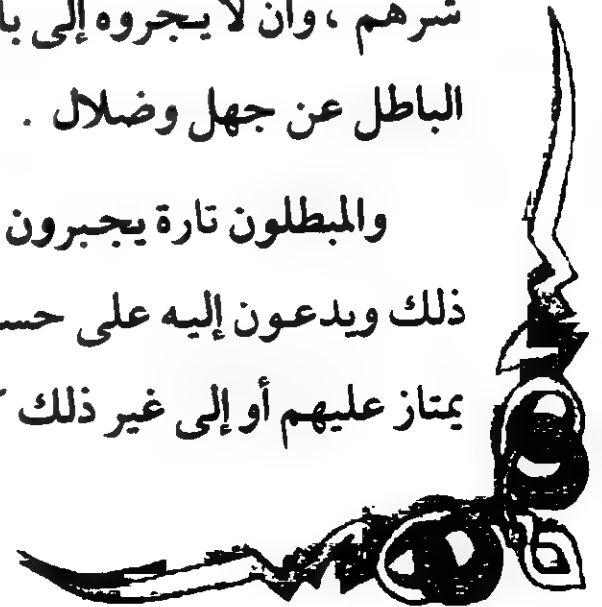 شرهم ، وأن لا يجروه إلى
الباطل عن جهل وضلال .
والمبطلون تارة يجبرون
ذلك ويدعون إليه على
يمتاز عليهم أو إلى غير ذلك